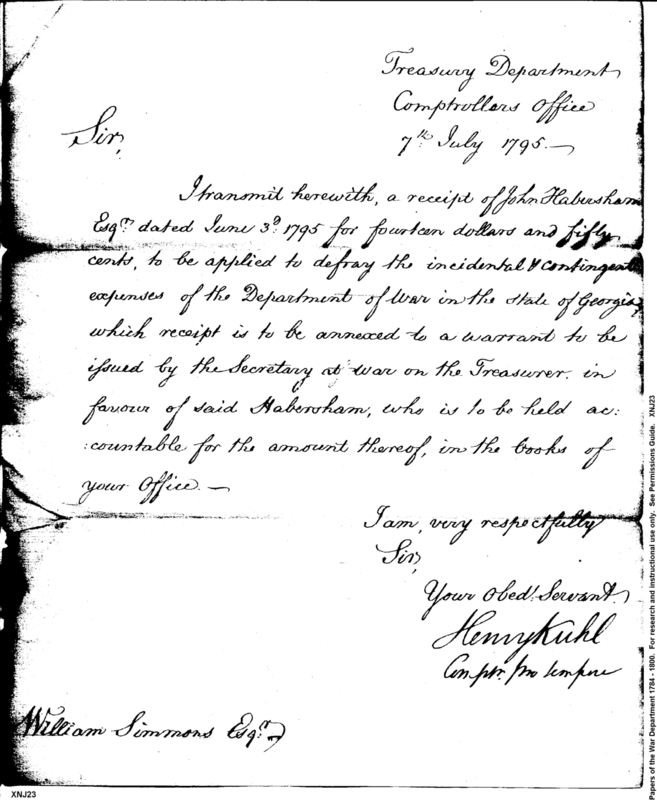 Treasury Department
Comptrollers Office
7th July 1795.—
Sir,
I transmit herewith, a receipt of John Habersham
Esqr. dated June 3d. 1795 for fourteen dollars and fifty
cents, to be applied to defray the incidental & contingent
expenses of the Department of War in the state of Georgia,
which receipt is to be annexed to a warrant to be
issued by the Secretary at war on the Treasurer. in
favour of said Habersham, who is to be held ac:
:countable for the amount thereof, in the books of
your Office.—
I am, very respectfully
Sir,
Your Obedt. Servant.
Henry Kuhl
Comptr. pro tempore
William Simmons Esqr.
XNJ23
Papers of the War Department 1784 - 1800. For research and instructional use only. See Permissions Guide. XNJ23